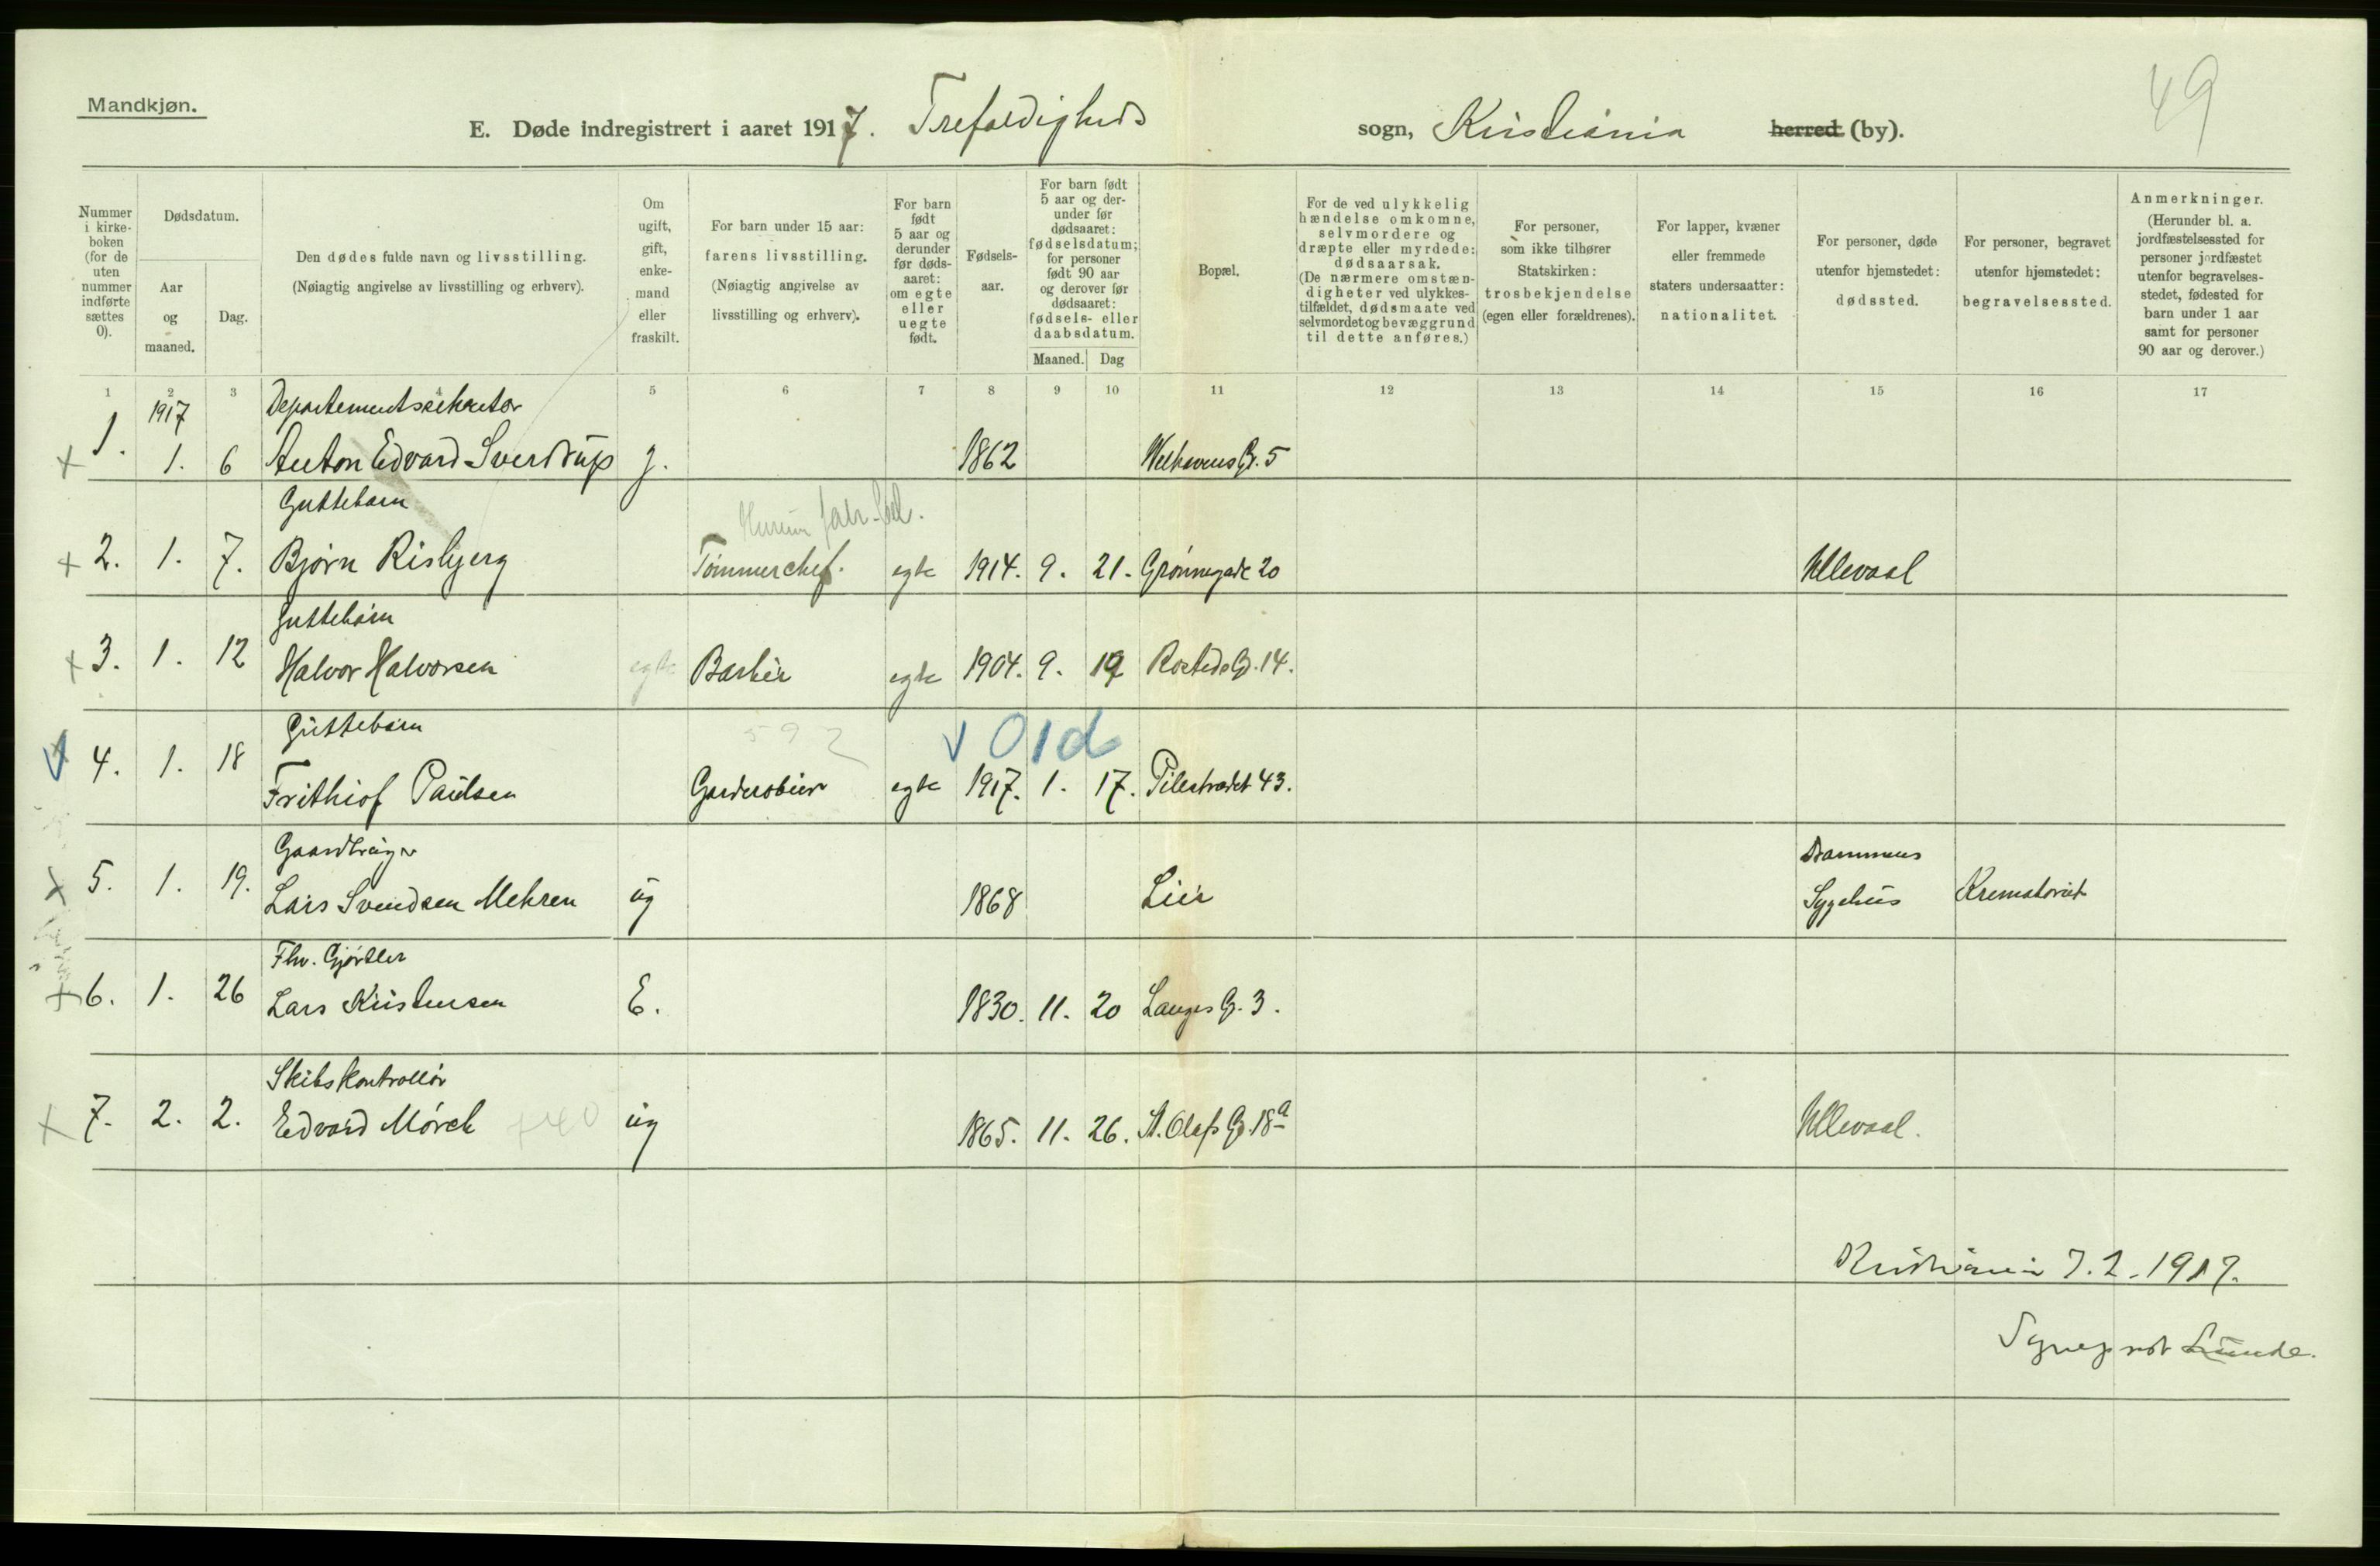 49
Mandkjøn.
E. Døde indregistrert i aaret 1917. Trefoldigheds sogn, Kristiania herred (by).
Nummer i kirkeboken (for de uten nummer indførte sættes 0).
Dødsdatum.
Aar og maaned.
Dag.
Den dødes fulde navn og livsstilling.
(Nøiagtig angivelse av livsstilling og erhverv).
Om ugift, gift, enkemand eller fraskilt.
For barn under 15 aar: farens livsstilling. (Nøiagtig angivelse av livsstilling og erhverv).
For barn født 5 aar og derunder før dødsaaret: om egte eller uegte født.
Fødselsaar.
For barn født 5 aar og derunder før dødsaaret: fødselsdatum; for personer født 90 aar og derover før dødsaaret: fødsels- eller daabsdatum.
Maaned. Dag
Bopæl.
For de ved ulykkelig hændelse omkomne, selvmordere og dræpte eller myrdede: dødsaarsak. (De nærmere omstændigheter ved ulykkestilfældet, dødsmaate ved selvmordet og bevæggrund til dette anføres.)
For personer, som ikke tilhører Statskirken: trosbekjendelse (egen eller forældrenes).
For lapper, kvæner eller fremmede staters undersaatter: nationalitet.
For personer, døde utenfor hjemstedet: dødssted.
For personer, begravet utenfor hjemstedet: begravelsessted.
Anmerkninger. (Herunder bl. a. jordfæstelsessted for personer jordfæstet utenfor begravelsesstedet, fødested for barn under 1 aar samt for personer 90 aar og derover.)
1 2 3 4 5 6 7 8 9 10 11 12 13 14 15 16 17
1917 Departementssekretær
1. 1. 6 Anton Edvard Sverdrup g. 1862 Welhavens G. 5
Guttebarn
2. 1. 7. Bjørn Risbjerg Tømmerchef. egte 1914. 9. 21. Grønnegade 20 Ullevaal
Guttebarn
3. 1. 12 Halvor Halvorsen egte Barbér egte 1904. 9. 19 Rosteds G. 14.
Guttebarn 592 v 01d
4. 1. 18 Frithiof Paulsen Garderobier egte 1917. 1. 17. Pilestrædet 43.
Gaardbruger Drammens
5. 1. 19. Lars Svendsen Mehren ug 1868 Lier Sygehus Krematoriet
Fhv. Gjørtler
6. 1. 26 Lars Kristensen E. 1830. 11. 20 Langes G. 3.
Skibskontrollør
7. 2. 2. Edvard Mørch ug 1865. 11. 26. St. Olafs G. 18a Ullevaal.
Kristiania 7.2.1917.
Lunde.